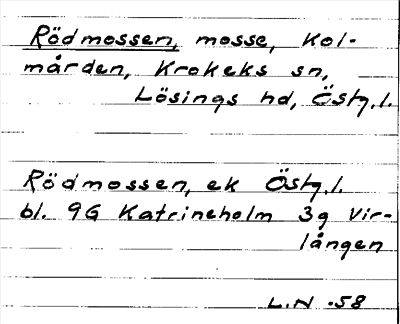 Rödmossen, mosse, Kol-
mården, Krokeks sn,
Lösings hd, Östg.l.
Rödmossen, ek Östg.l.
bl. 9G Katrineholm 3g Vir-
lången
L.N -58